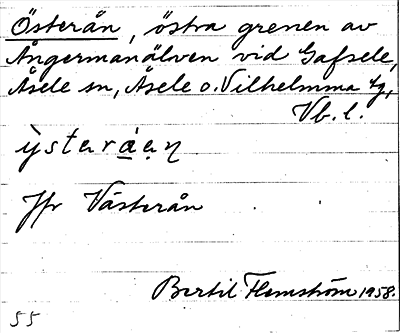 Österån, östra grenen av
Ångermanälven vid Gafsele,
Åsele sn, Åsele o. Vilhelmina tg,
Vb. l.
ỳsteråen
Jfr Västerån
Bertil Flemström 1958.
55